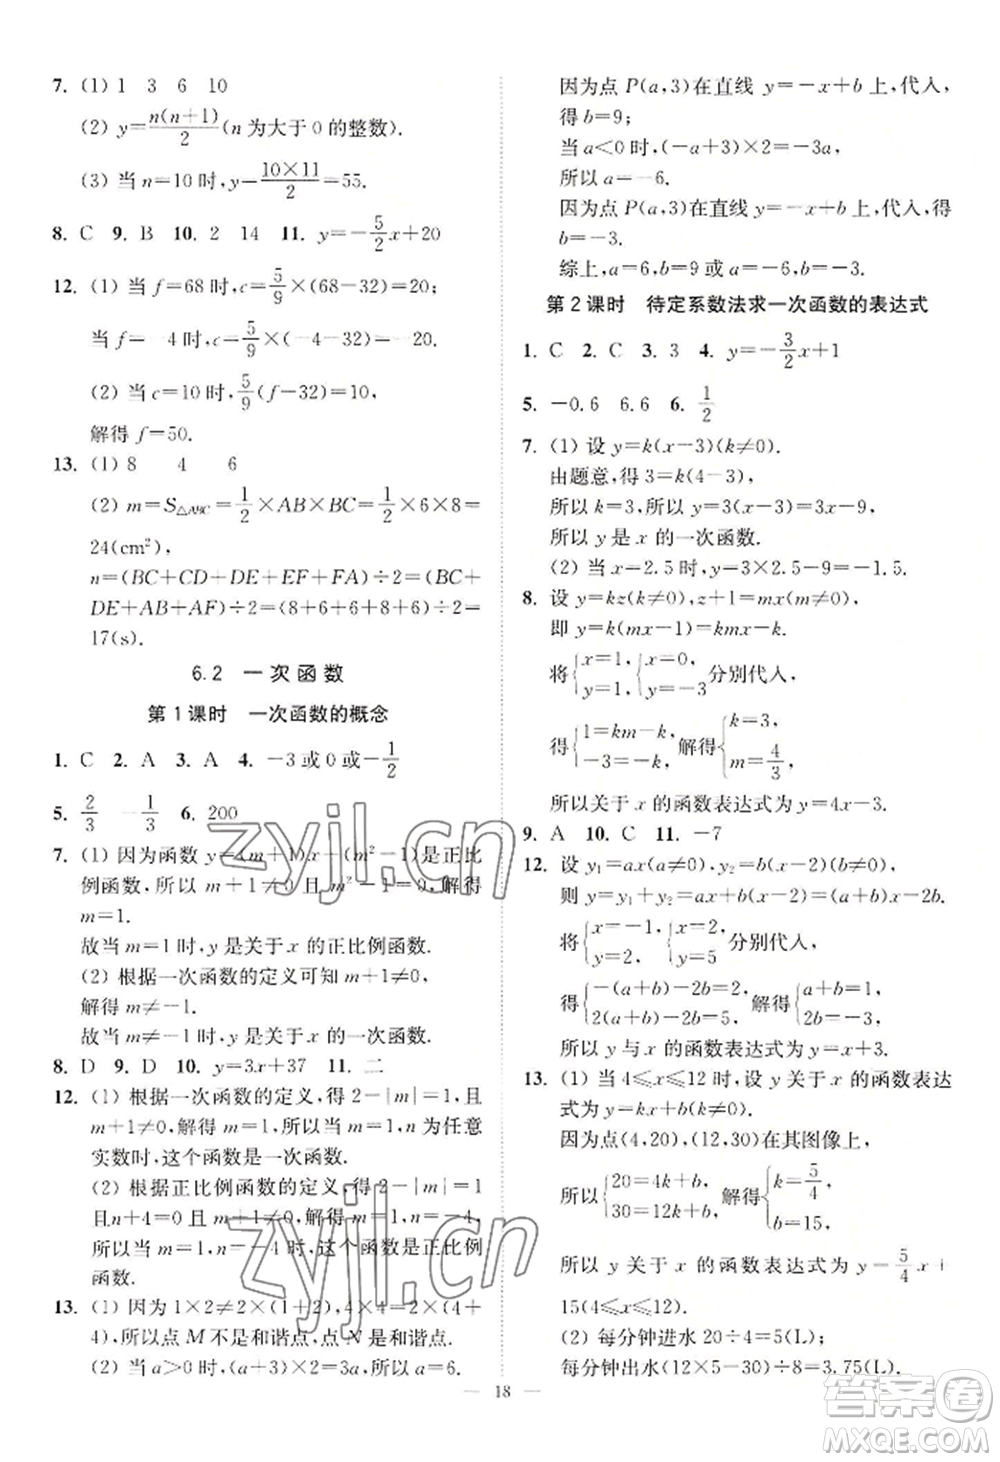 7. (1) 1 3 6 10
(2) y=n(n+1)/2(n 为大于 0 的整数).
(3) 当 n=10 时,y=10×11/2=55.
8. C 9. B 10. 2 14 11. y=-5/2x+20
12. (1) 当 f=68 时,c=5/9×(68-32)=20.
当 f=-4 时,c=5/9×(-4-32)=-20.
(2) 当 c=10 时,5/9(f-32)=10,
解得 f=50.
13. (1) 8 4 6
(2) m=S△ABC=1/2×AB×BC=1/2×6×8=
24(cm²),
n=(BC+CD+DE+EF+FA)÷2=(BC+
DE+AB+AF)÷2=(8+6+6+8+6)÷2=
17(s).
6.2 一次函数
第 1 课时 一次函数的概念
1. C 2. A 3. A 4. -3 或 0 或 -1/2
5. 2/3 -1/3 6. 200
7. (1) 因为函数 y=(m+1)x+(m²-1)是正比
例函数,所以 m+1≠0 且 m²-1=0,解得
m=1.
故当 m=1 时,y 是关于 x 的正比例函数.
(2) 根据一次函数的定义可知 m+1≠0,
解得 m≠-1.
故当 m≠-1 时,y 是关于 x 的一次函数.
8. D 9. D 10. y=3x+37 11. 二
12. (1) 根据一次函数的定义,得 2-|m|=1,且
m+1≠0,解得 m=1,所以当 m=1,n 为任意
实数时,这个函数是一次函数.
(2) 根据正比例函数的定义,得 2-|m|=1
且n+4=0 且 m+1≠0,解得 m=1,n=-4,
所以当 m=1,n=-4 时,这个函数是正比例
函数.
13. (1) 因为 1×2≠2×(1+2),4×4=2×(4+
4),所以点 M 不是和谐点,点 N 是和谐点.
(2) 当 a>0 时,(a+3)×2=3a,所以 a=6.
因为点 P(a,3)在直线 y=-x+b 上,代入,
得 b=9;
当 a<0 时,(-a+3)×2=-3a,
所以 a=-6.
因为点 P(a,3)在直线 y=-x+b 上,代入,得
b=-3.
综上,a=6,b=9 或 a=-6,b=-3.
第 2 课时 待定系数法求一次函数的表达式
1. C 2. C 3. 3 4. y=-3/2x+1
5. -0.6 6.6 6. 1/2
7. (1) 设 y=k(x-3)(k≠0).
由题意,得 3=k(4-3),
所以 k=3,所以 y=3(x-3)=3x-9,
所以 y是 x 的一次函数.
(2) 当 x=2.5 时,y=3×2.5-9=-1.5.
8. 设 y=kz(k≠0),z+1=mx(m≠0),
即 y=k(mx-1)=kmx-k.
将{x=1, y=1, {x=0, y=-3 分别代入,
得{1=km-k, -3=-k, 解得{k=3, m=4/3,
所以关于 x 的函数表达式为 y=4x-3.
9. A 10. C 11. -7
12. 设 y₁=ax(a≠0),y₂=b(x-2)(b≠0),
则 y=y₁+y₂=ax+b(x-2)=(a+b)x-2b.
将{x=-1, y=2, {x=2, y=5 分别代入,
得{-(a+b)-2b=2, 2(a+b)-2b=5, 解得{a+b=1, 2b=-3,
所以 y 与 x 的函数表达式为 y=x+3.
13. (1) 当 4≤x≤12 时,设 y 关于 x 的函数表达
式为 y=kx+b(k≠0).
因为点(4,20),(12,30)在其图像上,
所以{20=4k+b, 30=12k+b, 解得{k=5/4, b=15,
所以 y 关于 x 的函数表达式为 y=5/4x+
15(4≤x≤12).
(2) 每分钟进水 20÷4=5(L);
每分钟出水(12×5-30)÷8=3.75(L).
18
zyjl.cn
zyjl.cn
答案圈
MXQE.COM